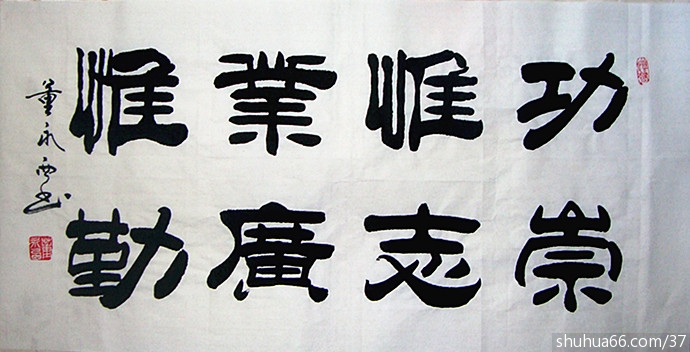 功崇
惟志
業廣
惟勤
董永西书
shuhua66.com/37